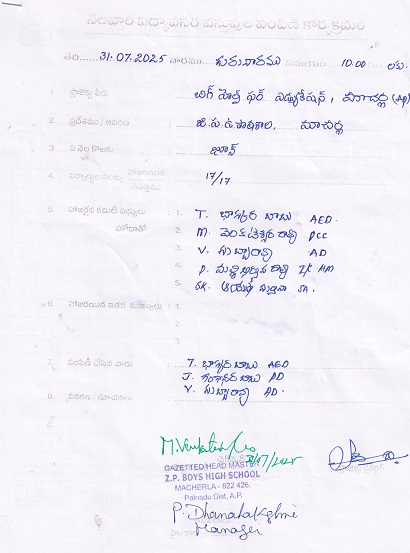 నెలవారీ విద్యావసర వస్తువుల పంపిణీ కార్యక్రమం
తేది.....31.07.2025 వారము.... గురువారము సమయం 10.00 లకు.
1. ప్రాజెక్టు పేరు : బిగ్ హెల్ప్ ఫర్ ఎడ్యుకేషన్, మాచర్ల (AP)
2. ప్రదేశము / ఆవరణ : మాచర్ల
3. ఏ నెల కొరకు : జూన్
4. విద్యార్థుల సంఖ్య హాజరయినది / మొత్తము : 17/17
5. హాజరైన కమిటీ సభ్యులు హోదాతో : 1. T. భాస్కర బాబు AED.
2. M. వెంకటేశ్వర రావు DCC
3. V. సుబ్బారావు AD
4. P. మల్లికార్జున రావు HM
5. SK. SA.
6. హాజరయిన ఇతర ముఖ్యులు : 1
2
3
7. పంపిణీ చేసిన వారు : T. భాస్కర బాబు AED
J. గంగాధర బాబు AD
V. సుబ్బారావు AD.
8. వివరణ / సూచనలు :
M. Venkateswara Rao
31/07/2025
GAZETTED HEAD MASTER
Z.P. BOYS HIGH SCHOOL
MACHERLA - 522 426.
Palnadu Dist. A.P.
P. Dhanalakshmi
Manager